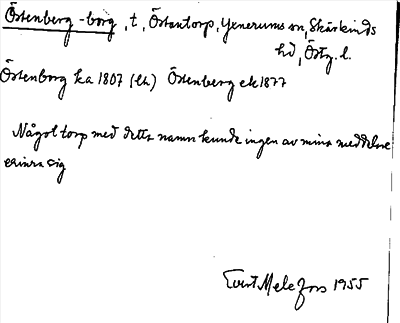 Östenberg -borg, t, Östantorp, Yxnerums sn, Skärkinds
hd, Östg. l.
Östenborg ka 1807 (lh) Östenberg ek 1877
Något torp med detta namn kunde ingen av mina meddelare
erinra sig
Evert Melefors 1955